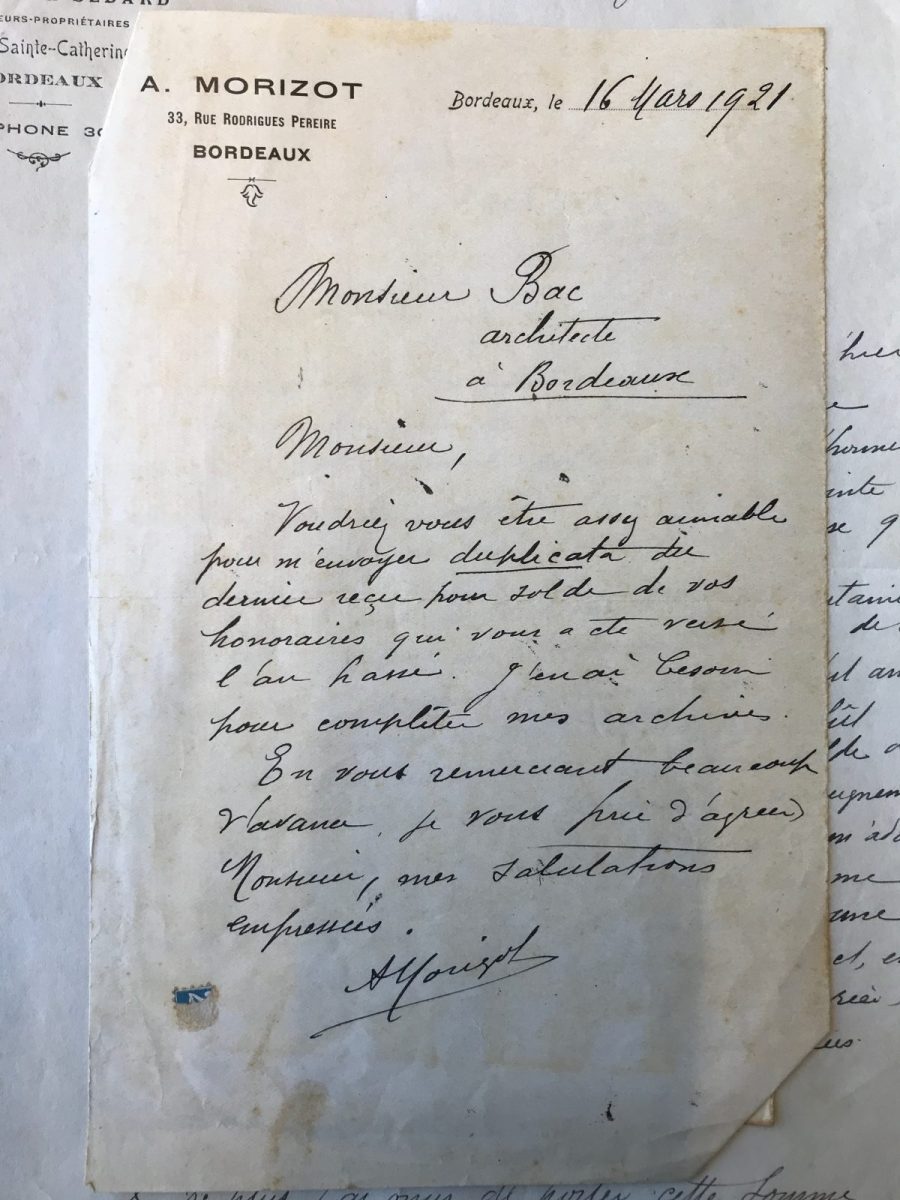 EURS-PROPRIÉTAIRES
Sainte-Catherine
ORDEAUX
PHONE 30
A. MORIZOT
33, RUE RODRIGUES PEREIRE
BORDEAUX
Bordeaux, le 16 Mars 1921
Monsieur Bac
architecte
à Bordeaux
Monsieur,
Voudriez vous être assez aimable
pour m'envoyer duplicata du
dernier reçu pour solde de vos
honoraires qui vous a été versé
l'an passé. J'en ai besoin
pour compléter mes archives.
En vous remerciant beaucoup
d'avance, je vous prie d'agréer,
Monsieur, mes salutations
empressées.
AMorizot
hier
de
me
cette somme